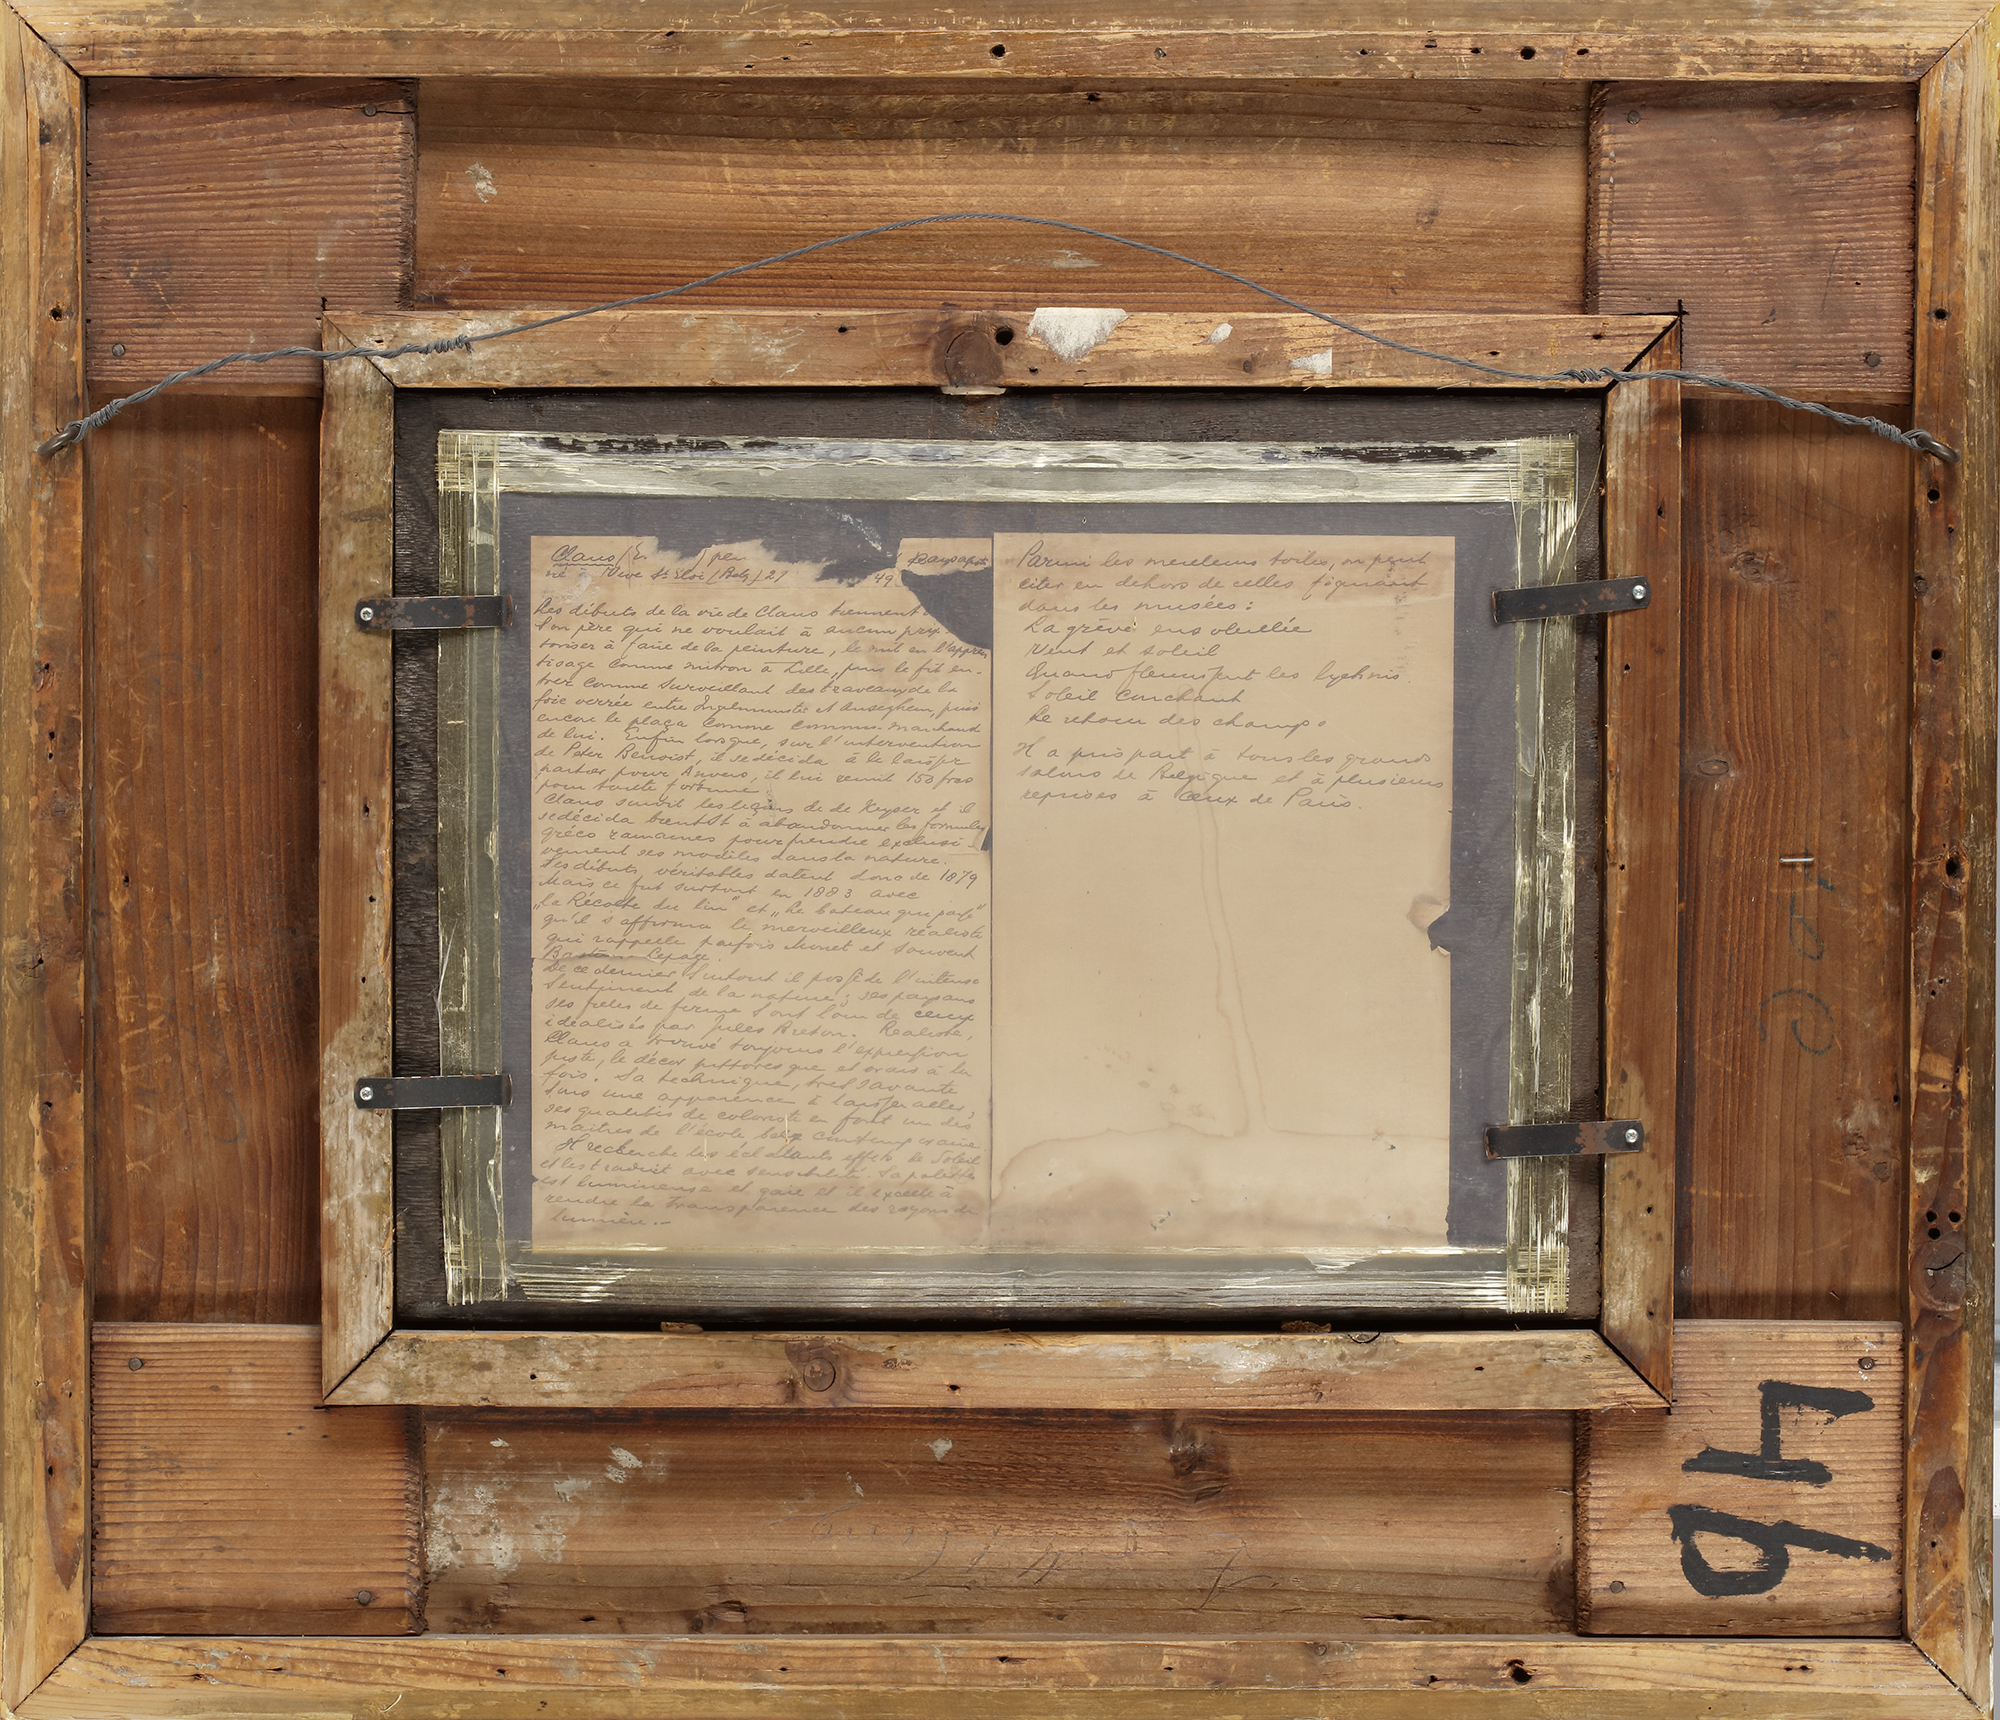 Claus
né à Vive St Eloi (Belg) 27 49 paysagiste
Les débuts de la vie de Claus tiennent
Son père qui ne voulait à aucun prix
toriser à faire de la peinture, le mit en l'appren
tissage comme mitron à Lille, puis le fit en-
trer comme surveillant des travaux de la
foie verrée entre Ingelmunster et Anseghem, puis
encore le plaça comme commis marchand
de lin. Enfin lorsque, sur l'intervention
de Peter Benoist, il se décida à le laisser
partir pour Anvers, il lui remit 150 frcs
pour toute fortune.
Claus suivit les leçons de de Keyser et il
se décida bientôt à abandonner les formules
gréco romaines pour prendre exclusi-
vement ses modèles dans la nature.
Ses débuts véritables datent donc de 1879
Mais ce fut surtout en 1883 avec
„La Récolte du lin" et „Le bateau qui passe"
qu'il s'affirma le merveilleux réaliste
qui rappelle parfois Monet et souvent
Bastien Lepage.
De ce dernier surtout il possède l'intense
sentiment de la nature; ses paysans
ses filles de ferme sont loin de ceux
idéalisés par Jules Breton. Réaliste,
Claus a trouvé toujours l'expression
juste, le décor pittoresque et vrais à la
fois. Sa technique, très savante
sous une apparence à laisser aller;
ses qualités de coloriste en font un des
maîtres de l'école belge contemporaine
Il recherche les éclatants effets de Soleil
et les traduit avec sensibilité. Sa palette
est lumineuse et gaie et il excelle à
rendre la transparence des rayons de
lumière.—
Parmi les meilleures toiles, on peut
citer en dehors de celles figurant
dans les musées:
La grève ensoleillée
Vent et soleil
Quand fleurissent les lychnis.
Soleil couchant
Le retour des champs
Il a pris part à tous les grands
salons de Belgique et à plusieurs
reprises à ceux de Paris.